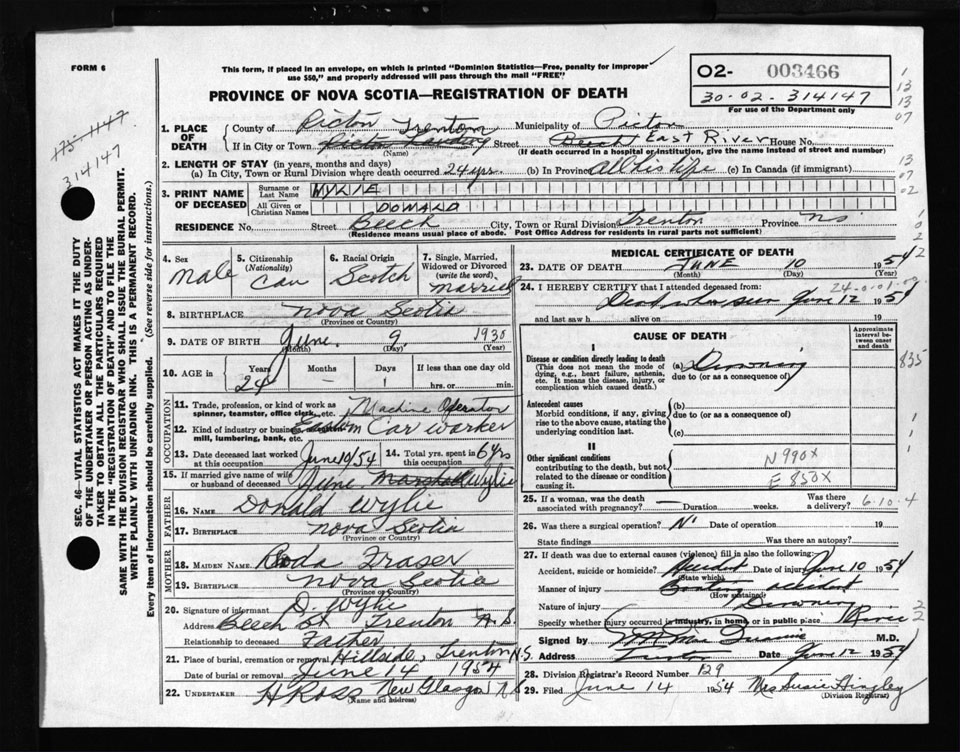 FORM 6
This form, if placed in an envelope, on which is printed "Dominion Statistics—Free, penalty for improper
use $50," and properly addressed will pass through the mail "FREE"
PROVINCE OF NOVA SCOTIA—REGISTRATION OF DEATH
O2- 003466
30-02-314147
For use of the Department only
1. PLACE OF DEATH
County of Pictou Trenton Municipality of Pictou
If in City or Town Pictou Landing Street East River House No.
(Name) (If death occurred in a hospital or institution, give the name instead of street and number)
2. LENGTH OF STAY (in years, months and days)
(a) In City, Town or Rural Division where death occurred 24 yrs (b) In Province All his life (c) In Canada (if immigrant)
3. PRINT NAME OF DECEASED
Surname or Last Name WYLIE
All Given or Christian Names DONALD
RESIDENCE No. Street Beech City, Town or Rural Division Trenton Province NS
(Residence means usual place of abode. Post Office Address for residents in rural parts not sufficient)
4. Sex Male
5. Citizenship (Nationality) Can
6. Racial Origin Scotch
7. Single, Married, Widowed or Divorced (write the word) married
8. BIRTHPLACE Nova Scotia
(Province or Country)
9. DATE OF BIRTH June 9 1930
(Month) (Day) (Year)
10. AGE in Years Months Days If less than one day old
24 — 1 hrs. or min.
OCCUPATION
11. Trade, profession, or kind of work as
spinner, teamster, office clerk, etc. Machine Operator
12. Kind of industry or business, as in
mill, lumbering, bank, etc. Car worker
13. Date deceased last worked
at this occupation June 10/54
14. Total yrs. spent in
this occupation 6 yrs
15. If married give name of wife
or husband of deceased June Marshall Wylie
FATHER
16. NAME Donald Wylie
17. BIRTHPLACE Nova Scotia
(Province or Country)
MOTHER
18. MAIDEN NAME Roda Fraser
19. BIRTHPLACE Nova Scotia
(Province or Country)
20. Signature of informant D. Wylie
Address Beech St Trenton N.S.
Relationship to deceased Father
21. Place of burial, cremation or removal Hillside, Trenton N.S.
Date of burial or removal June 14 1954
22. UNDERTAKER H Ross New Glasgow N.S
(Name and address)
MEDICAL CERTIFICATE OF DEATH
23. DATE OF DEATH JUNE 10 1954
(Month) (Day) (Year)
24. I HEREBY CERTIFY that I attended deceased from:
Dead when seen June 12 1954
and last saw h alive on 19
CAUSE OF DEATH
Approximate interval between onset and death
I
Disease or condition directly leading to death
(This does not mean the mode of
dying, e.g., heart failure, asthenia,
etc. It means the disease, injury, or
complication which caused death.)
(a) Drowning
due to (or as a consequence of)
Antecedent causes
Morbid conditions, if any, giving
rise to the above cause, stating the
underlying condition last.
(b)
due to (or as a consequence of)
(c)
II
Other significant conditions
contributing to the death, but not
related to the disease or condition
causing it.
N 990X
E 850X
835
25. If a woman, was the death
associated with pregnancy? — Duration weeks. Was there a delivery? 6-10-4
26. Was there a surgical operation? No Date of operation 19
State findings Was there an autopsy?
27. If death was due to external causes (violence) fill in also the following:
Accident, suicide or homicide? Accident Date of injury June 10 1954
(State which)
Manner of injury Boating accident
(How sustained)
Nature of injury Drowning
Specify whether injury occurred in industry, in home, or in public place River
Signed by M.D.
Address Trenton Date June 12 1954
28. Division Registrar's Record Number 129
29. Filed June 14 1954 Mrs Susie Hingley
(Division Registrar)
175-1147
314147
SEC. 46—VITAL STATISTICS ACT MAKES IT THE DUTY
OF THE UNDERTAKER OR PERSON ACTING AS UNDER-
TAKER TO OBTAIN ALL THE PARTICULARS REQUIRED
IN THE "REGISTRATION OF DEATH" AND TO FILE THE
SAME WITH THE DIVISION REGISTRAR WHO SHALL ISSUE THE BURIAL PERMIT.
WRITE PLAINLY WITH UNFADING INK. THIS IS A PERMANENT RECORD.
Every item of information should be carefully supplied. (See reverse side for instructions.)